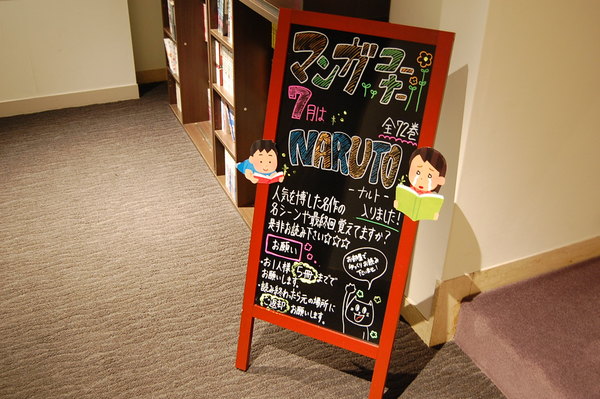 マンガコーナー
7月は
全72巻
NARUTO
－ナルト－
入りました!
人気を博した名作の
名シーンや最終回覚えてますか?
是非お読み下さい☆☆☆
お願い
・お1人様 5冊 までで
お願いします。
・読み終わったら元の場所に
ご返却お願いします。
お部屋で
ゆっくりお読み
下さいませ!